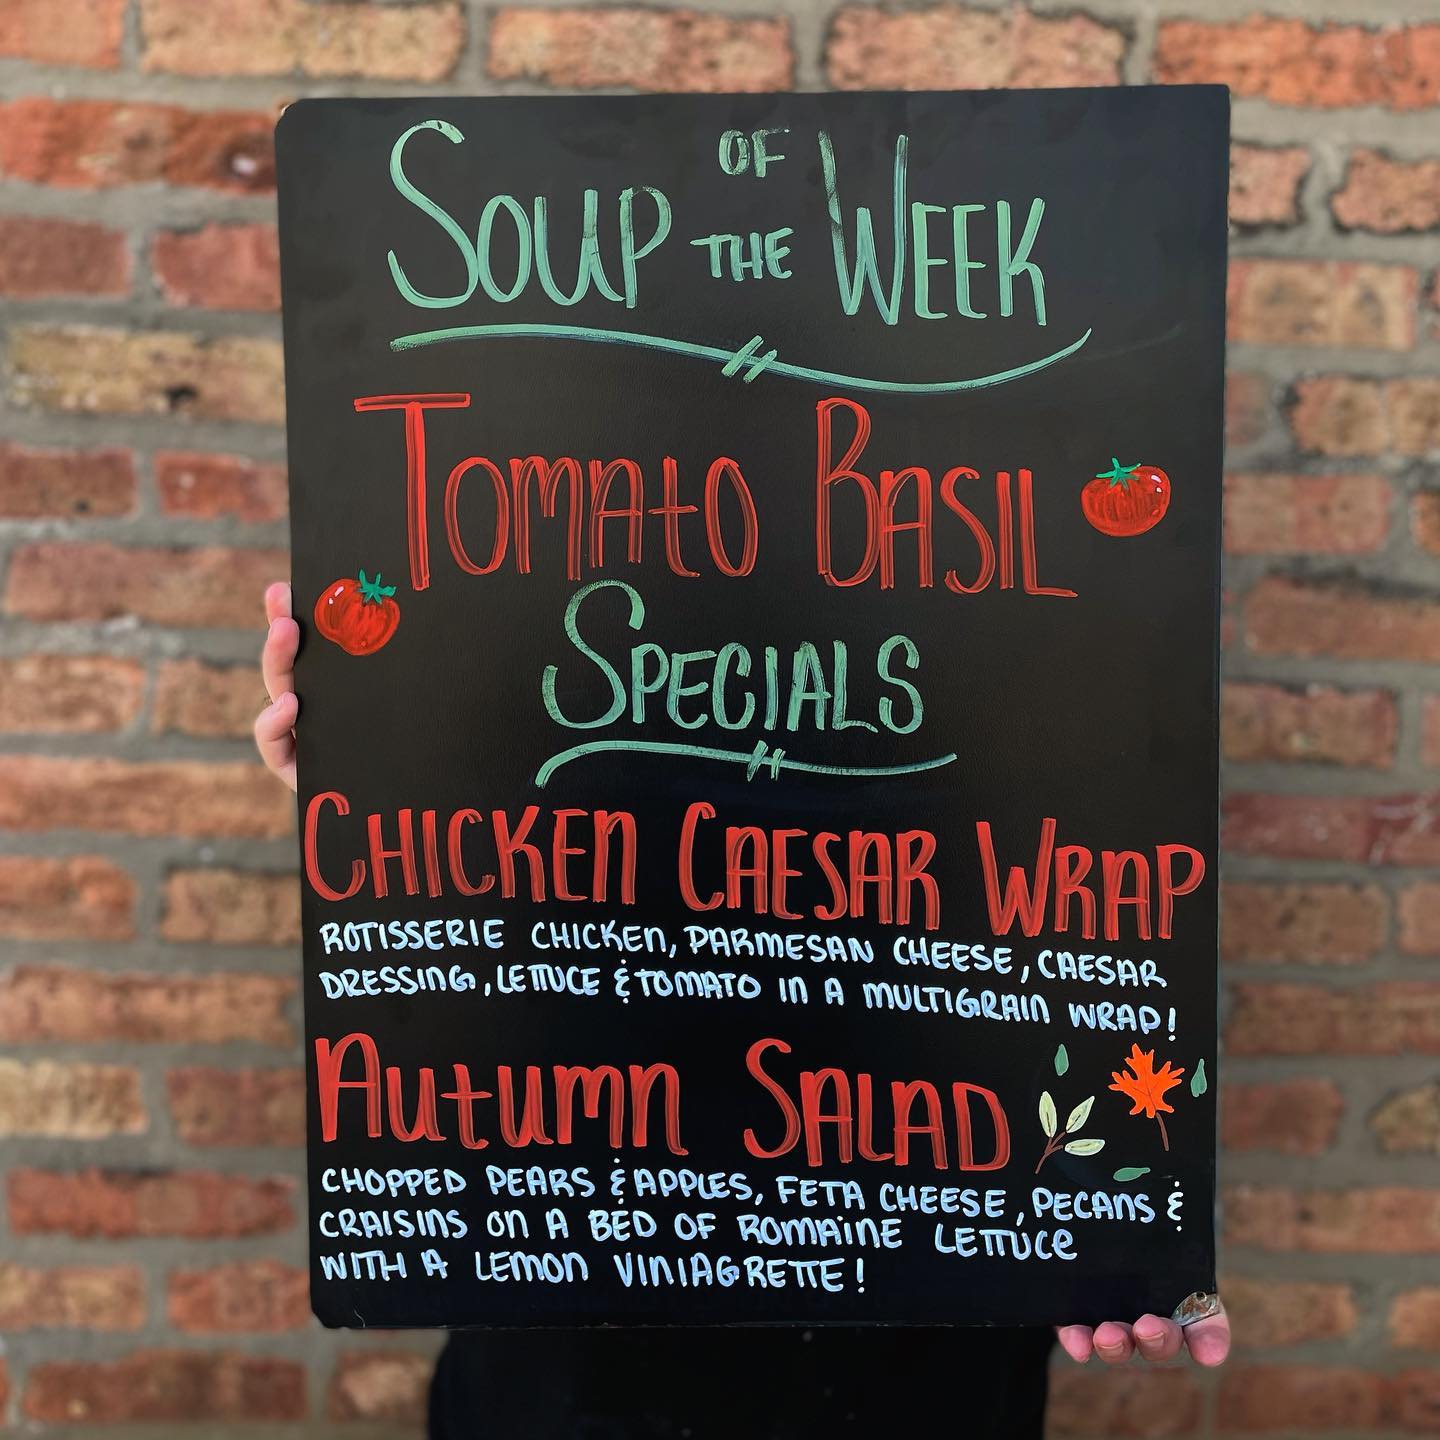 SOUP OF THE WEEK
TOMATO BASIL
SPECIALS
CHICKEN CAESAR WRAP
ROTISSERIE CHICKEN, PARMESAN CHEESE, CAESAR
DRESSING, LETTUCE & TOMATO IN A MULTIGRAIN WRAP!
AUTUMN SALAD
CHOPPED PEARS & APPLES, FETA CHEESE, PECANS &
CRAISINS ON A BED OF ROMAINE LETTUCE
WITH A LEMON VINIAGRETTE!